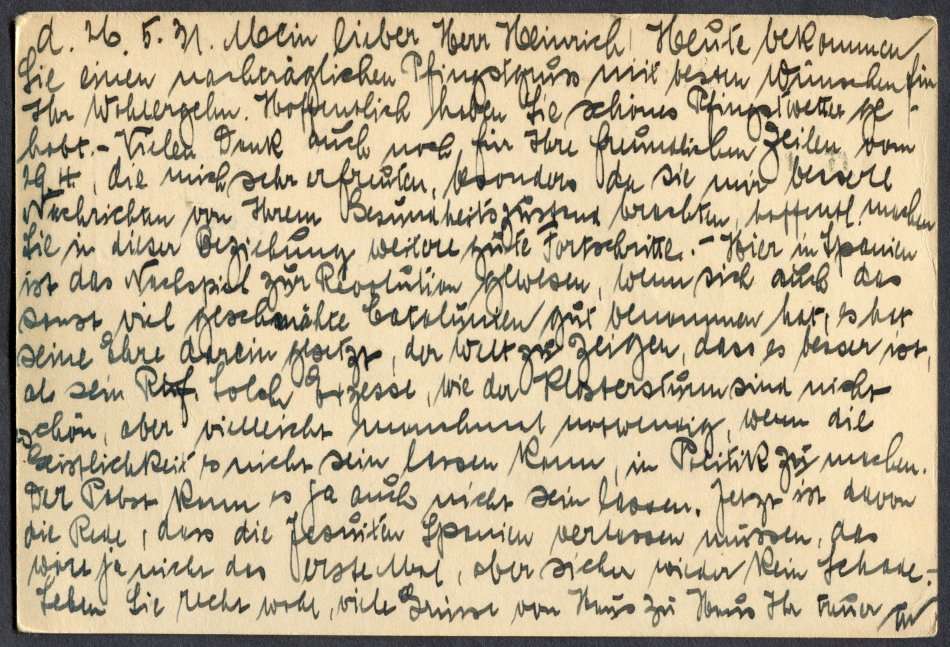 d. 26. 5. 31. Mein lieber Herr Heinrich! Heute bekommen
Sie einen nachträglichen Pfingstgruss mit besten Wünschen für
Ihr Wohlergehn. Hoffentlich haben Sie schönes Pfingstwetter ge-
habt. - Vielen Dank auch noch für Ihre freundlichen Zeilen vom
29. 4., die mich sehr erfreuten, besonders da sie mir bessere
Nachrichten von Ihrem Gesundheitszustand brachten, hoffentl. machen
Sie in dieser Beziehung weitere gute Fortschritte. - Hier in Spanien
ist das Nachspiel zur Revolution gewesen, wenn sich auch das
sonst viel geschmähte Catalunien gut benommen hat, es hat
seine Ehre darein gesetzt, der Welt zu zeigen, dass es besser ist,
als sein Ruf. Solch Exzesse, wie der Klostersturm sind nicht
schön, aber vielleicht manchmal notwendig, wenn die
Geistlichkeit es nicht sein lassen kann, in Politik zu machen.
Der Pabst kann es ja auch nicht sein lassen. Jetzt ist davon
die Rede, dass die Jesuiten Spanien verlassen müssen, das
wäre ja nicht das erste Mal, aber sicher wieder kein Schade. -
Leben Sie recht wohl, viele Grüsse von Haus zu Haus Ihr treuer